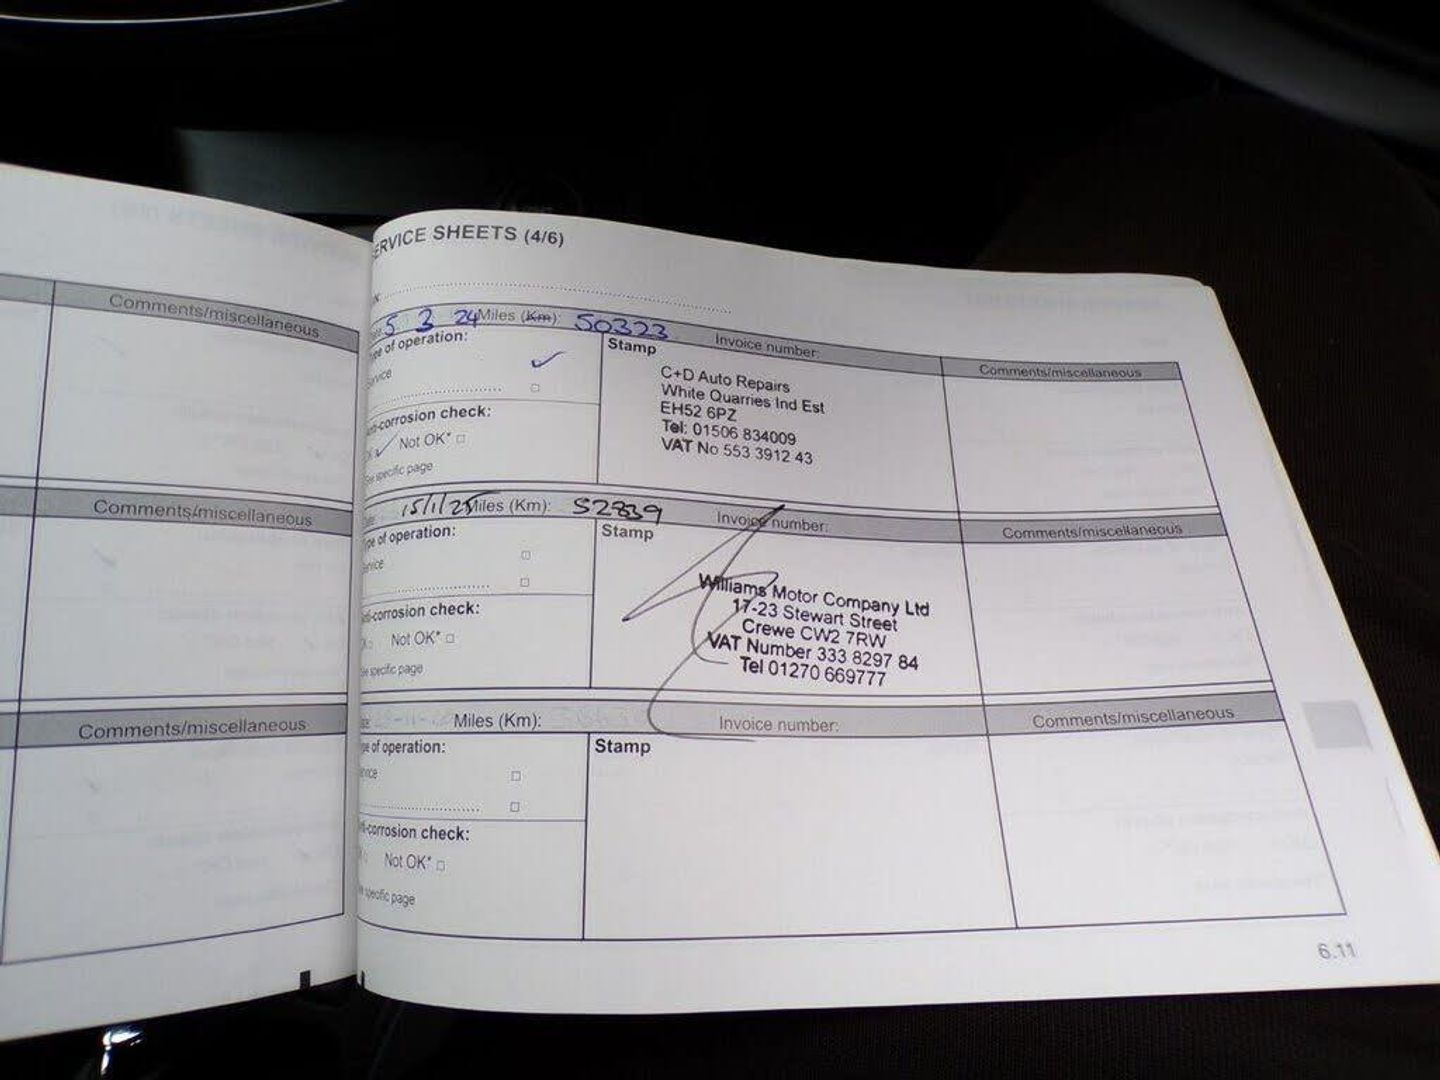 Comments/miscellaneous
Comments/miscellaneous
Comments/miscellaneous
ERVICE SHEETS (4/6)
5 3 24 Miles (Km): 50323 Invoice number:
Type of operation:
Stamp
Comments/miscellaneous
C+D Auto Repairs
White Quarries Ind Est
EH52 6PZ
Tel: 01506 834009
VAT No 553 3912 43
nti-corrosion check:
Not OK*
See specific page
15/1/25 Miles (Km): 52839 Invoice number:
Type of operation:
Stamp
Comments/miscellaneous
Williams Motor Company Ltd
17-23 Stewart Street
Crewe CW2 7RW
VAT Number 333 8297 84
Tel 01270 669777
ti-corrosion check:
Not OK*
specific page
Miles (Km): Invoice number:
pe of operation:
Stamp
Comments/miscellaneous
ti-corrosion check:
Not OK*
specific page
6.11